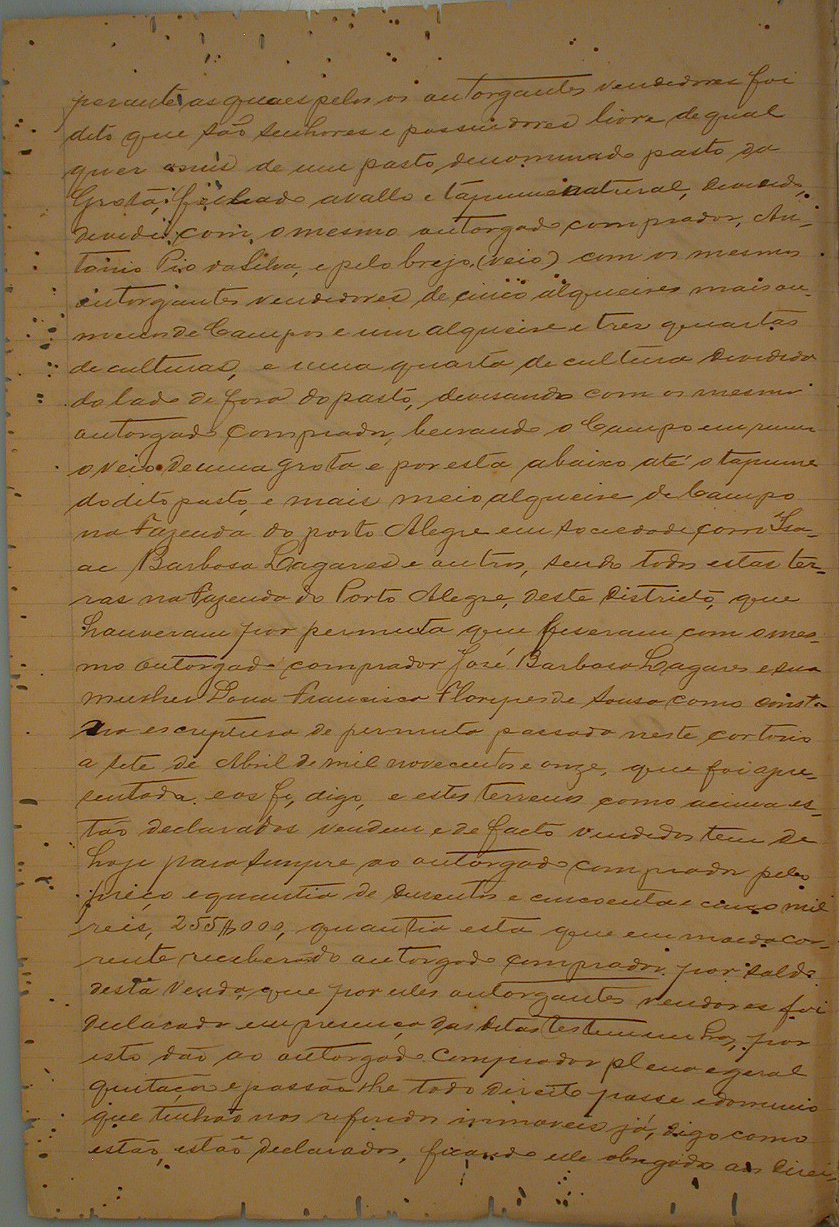 perante as quaes pelos os outorgantes vendedores foi
dito que são senhores e possuidores livre de qual
quer onus de um pasto denominado pasto da
Grota, fechado a vallo e tapume natural,
devidi com o mesmo outorgado comprador, An-
tonio Pio da Silva, e pelo brejo (veio) com os mesmos
outorgantes vendedores de cinco alqueires mais ou
menos de Campos e um alqueire e tres quartas
de culturas, e uma quarta de cultura devidida
do lado de fora do pasto, devisando com o mesmo
outorgado comprador, beirando o Campo em rumo
o veio de uma grota e por esta abaixo até o tapume
do dito pasto, e mais meio alqueire de Campo
na Fazenda do porto Alegre em sociedade com Isa-
ac Barbosa Lagares e outros, sendo todos estas ter-
ras na Fazenda do Porto Alegre, deste Districto, que
houveram por permuta que fiseram com o mes-
mo outorgado comprador José Barbosa Lagares e sua
mulher Dona Francisca Floripes de Sousa como consta
na escriptura de permuta passada neste cartorio
a sete de Abril de mil novecentos e onze, que foi apre-
sentada. e os fs, digo, e estes terrenos como acima es-
tão declarados vendem e de facto vendidos tem de
hoje para sempre ao outorgado comprador pelo
preço e quantia de dusentos e cincoenta e cinco mil
reis, 255$000, quantia esta que em moeda cor-
rente receberão do outorgado comprador por saldo
desta venda, que por elles outorgantes vendores foi
declarado em presença das ditas testemunhas, por
isto dão ao outorgado comprador plena e geral
quitação e passão lhe todo direito posse e dominio
que tinhão nos referidos immoveis já, digo como
estão, estão declarados, ficando elle obrigado aos direi-